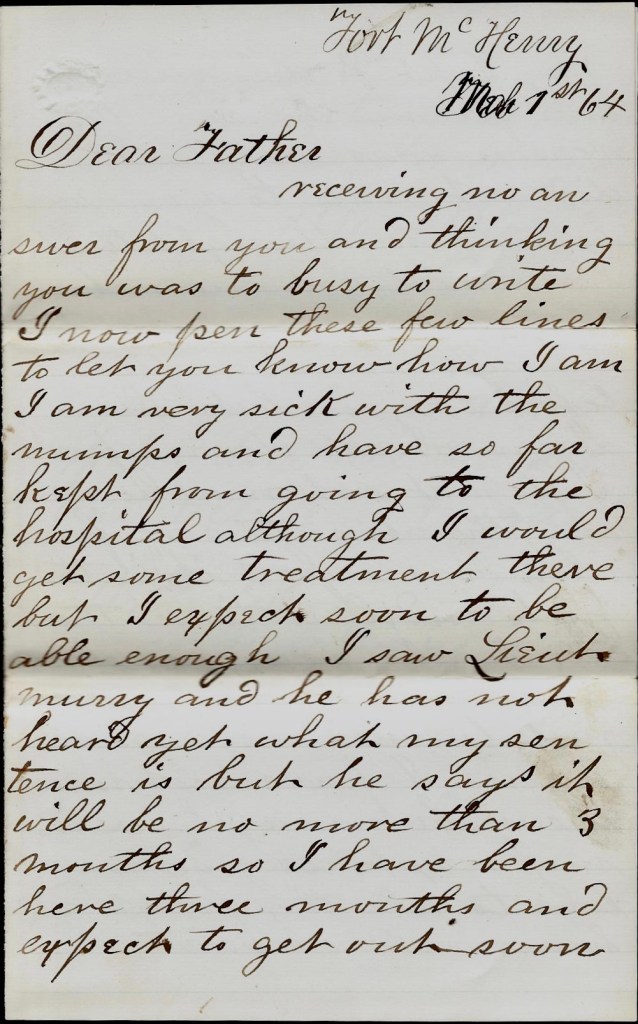 Fort McHenry
1st 64
Dear Father
receiving no an
swer from you and thinking
you was to busy to write
I now pen these few lines
to let you know how I am
I am very sick with the
mumps and have so far
kept from going to the
hospital although I would
get some treatment there
but I expect soon to be
able enough I saw Lieut.
murry and he has not
heard yet what my sen
tence is but he says it
will be no more than 3
months so I have been
here three months and
expect to get out soon